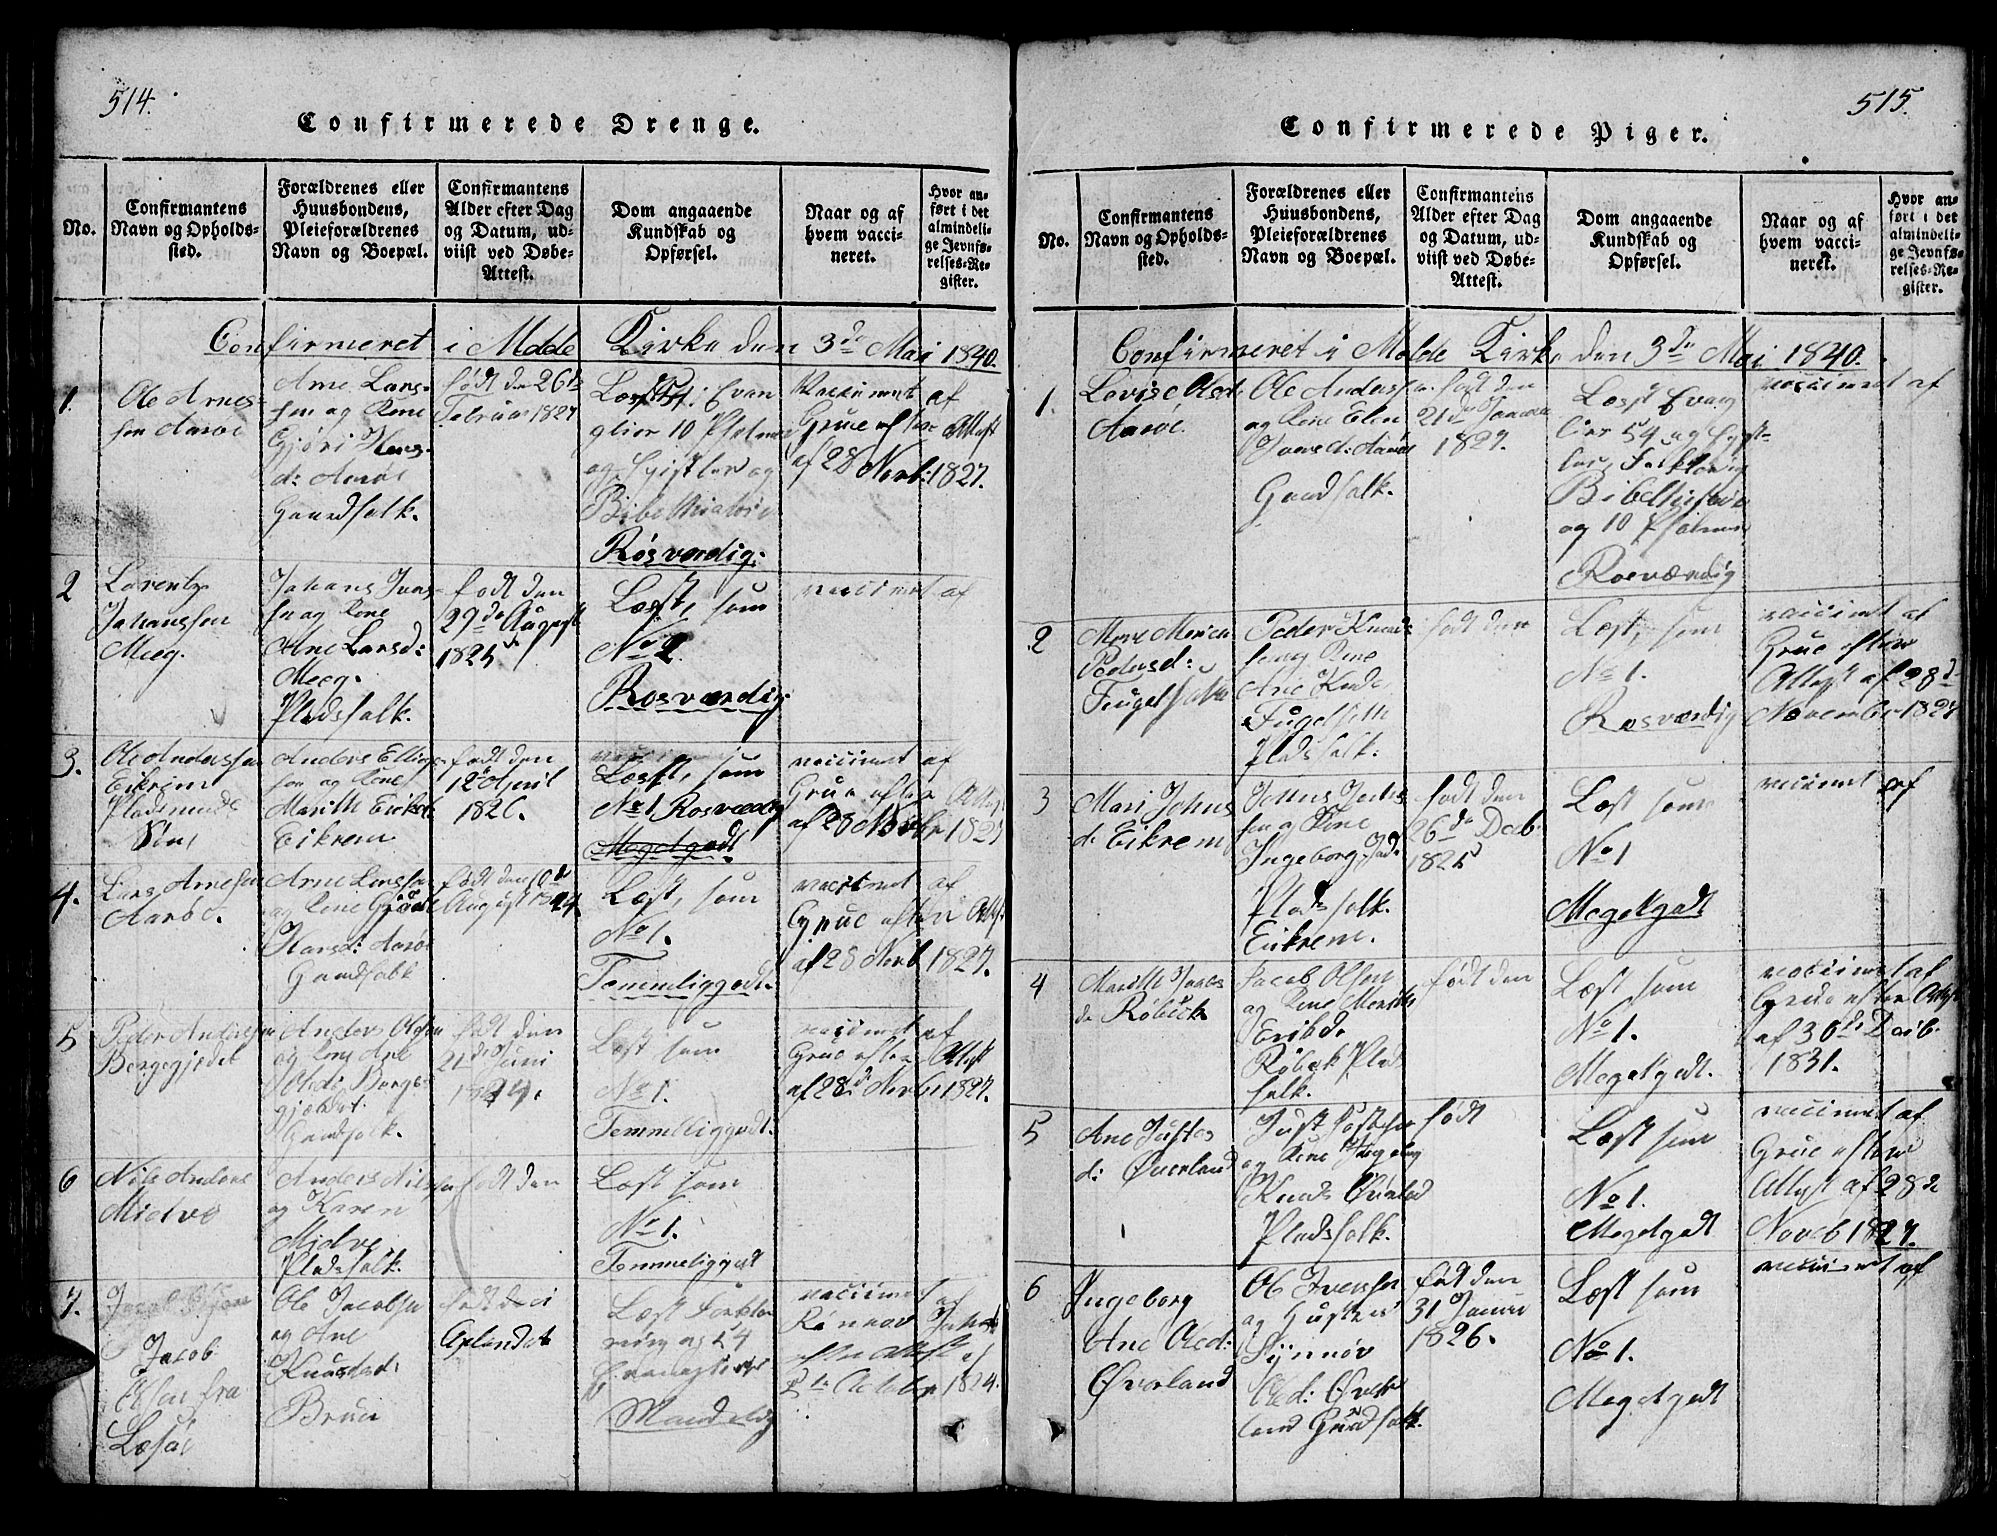 514.
Confirmerede Drenge.
No.
Confirmantens
Navn og Opholds-
sted.
Forældrenes eller
Huusbondens,
Pleieforældrenes
Navn og Boepæl.
Confirmantens
Alder efter Dag
og Datum, ud-
viist ved Døbe-
Attest.
Dom angaaende
Kundskab og
Opførsel.
Naar og af
hvem vacci-
neret.
Hvor an-
ført i det
almindeli-
ge Jevnfø-
relses-Re-
gister.
Confirmeret i Molde Kirke den 3de Mai 1840.
1.
Ole Arnes-
sen Aarøe
Arne Lars-
sen og Kone
Gjöri Hans-
d: Aarøe
Gaardfolk.
født de 26de
Februar 1827
10 Psalmer
og Epistler og
Rosværdig.
Vaccineret af
Grue efter Attest
af 28 Novb: 1827.
2
Lorentz
Johanssen
Moeg.
Johans Ivers-
sen og Kone
Ane Larsd:
Moeg.
Pladsfolk.
født den
29de August
1825
Læst, som
No 1.
Rosværdig
vaccineret af
3.
Ole Anderssen
Eikrem
Anders Ellings-
sen og Kone
Marith Eriksd
Eikrem
født den
12de April
1826.
Læst, som
No 1. Rosværdig
Megetgodt
vaccineret af
Grue efter Attest
af 28 Novbr 1827
4.
Lars Arnesen
Aarøe.
Arne Larssen
og Kone Gjöri
Hansd: Aarøe
Gaardfolk
født den
August 1824.
Læst, som
No 1.
Temmeliggodt.
vaccineret af
Grue efter Attest
af 28 Novb 1827.
5
Peder Andersen
Borgegjerdet
Anders Olsen
og Kone Ane
Olsd: Borge-
gjerdet.
Gaardfolk.
født den
21de Juni
1824.
Læst som
No 1.
Temmeliggodt.
vaccineret af
Grue efter Attest
af 28d Novbr 1827.
6
Nils Anders
Midve
Anders Nilsen
og Karen
Midve
Pladsfolk.
født den
Læst som
No 1.
Temmeliggodt
7.
Jacob
Olsen fra
Ole Jacobsen
og Ane
Knudsd:
født den
Læst Forkla-
ring og 54
Evangelier
Maadelig
vaccineret af
efter Attest af
October 1824.
515.
Confirmerede Piger.
No.
Confirmantens
Navn og Opholds-
sted.
Forældrenes eller
Huusbondens,
Pleieforældrenes
Navn og Boepæl.
Confirmantens
Alder efter Dag
og Datum, ud-
viist ved Døbe-
Attest.
Dom angaaende
Kundskab og
Opførsel.
Naar og af
hvem vacci-
neret.
Hvor an-
ført i det
almindeli-
ge Jevnfø-
relses-Re-
gister.
Confirmeret i Molde Kirke den 3de Mai 1840.
1.
Lovise Olsd:
Aarøe.
Ole Anderssen
og Kone Elen
Jonsd: Aarøe
Gaardfolk.
født den
21de Januar
1827.
Læst Evang
lier 54 og Epist-
ler, Forklaring
Bibelhistorie
og 10 Psalmer
Rosværdig
vaccineret af
2
Peder Knuds-
sen og Kone
Fugelseth
Pladsfolk.
født den
Læst, som
No 1.
Rosværdig
vaccineret af
Grue efter
Attest af 28d
November 1827
3
Mari Johns
d: Eikrem
sen og Kone
Ingeborg
Pladsfolk.
Eikrem.
født den
26de Decb.
1825
Læst som
No 1
Megetgodt
vaccineret af
4
d: Røbech
Jacob Olsen
og Kone
Røbek Plads
folk.
født den
Læst som
No 1.
Megetgodt.
vaccineret af
Grue efter Attest
af 30de Decb.
1831.
5
Ane Justes
d: Øverland
og Kone Ingeborg
Pladsfolk.
født
Læst som
No 1.
Megetgodt
vaccineret af
Grue efter
Attest af 28de
Novb 1827.
6
Ingeborg
Ane Olsd:
Øverland
Ole Iverssen
og Hustru
Synnöv
Olsd: Øver
land Gaardfolk.
født den
31 Januar
1826.
Læst som
No 1.
Megetgodt
vaccineret af